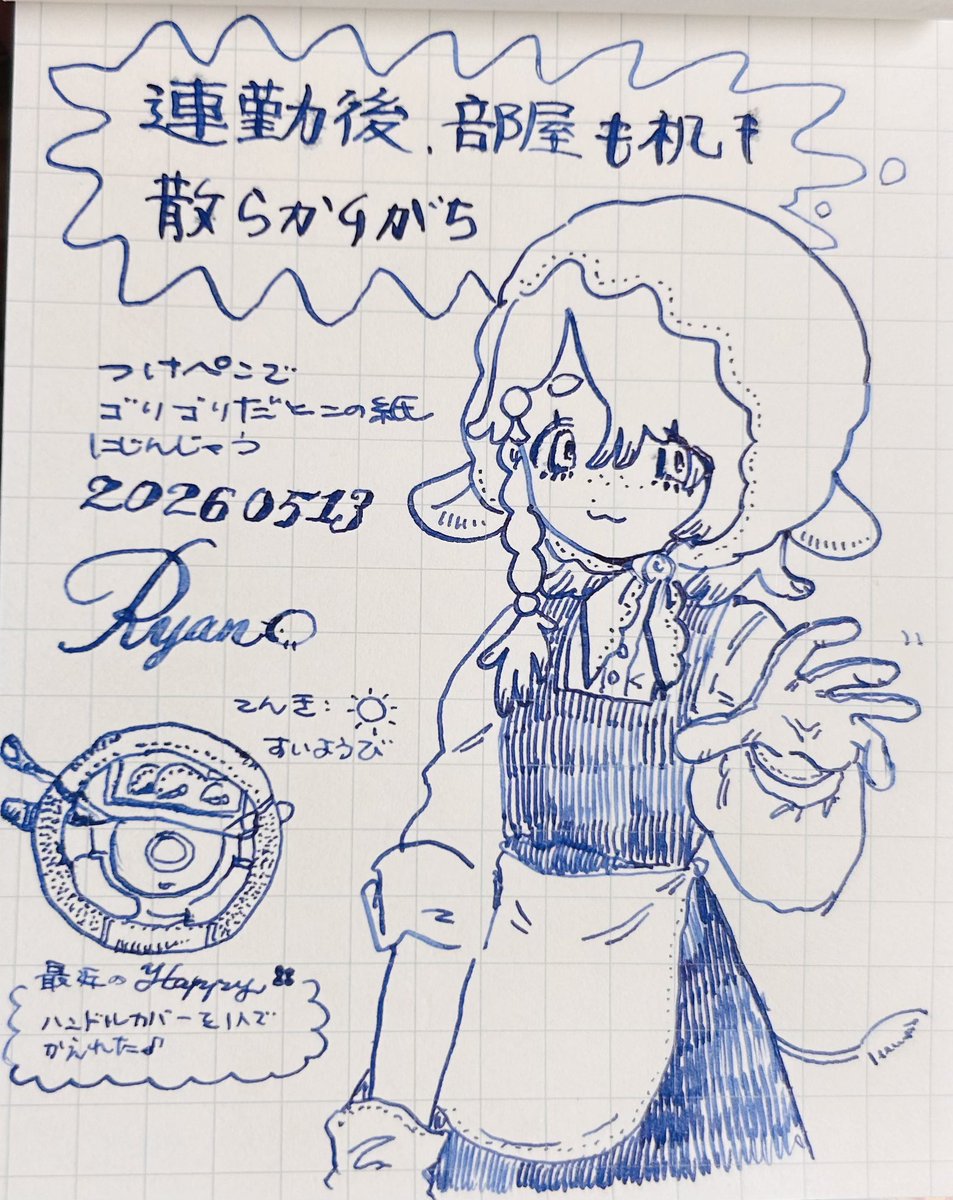 連勤後、部屋も机も
散らかりがち
つけペンで
ゴリゴリだとこの紙
にじんじゃう
20260513
Ryan
てんき:
すいようび
最近のHappy
ハンドルカバーを1人で
かえれた♪